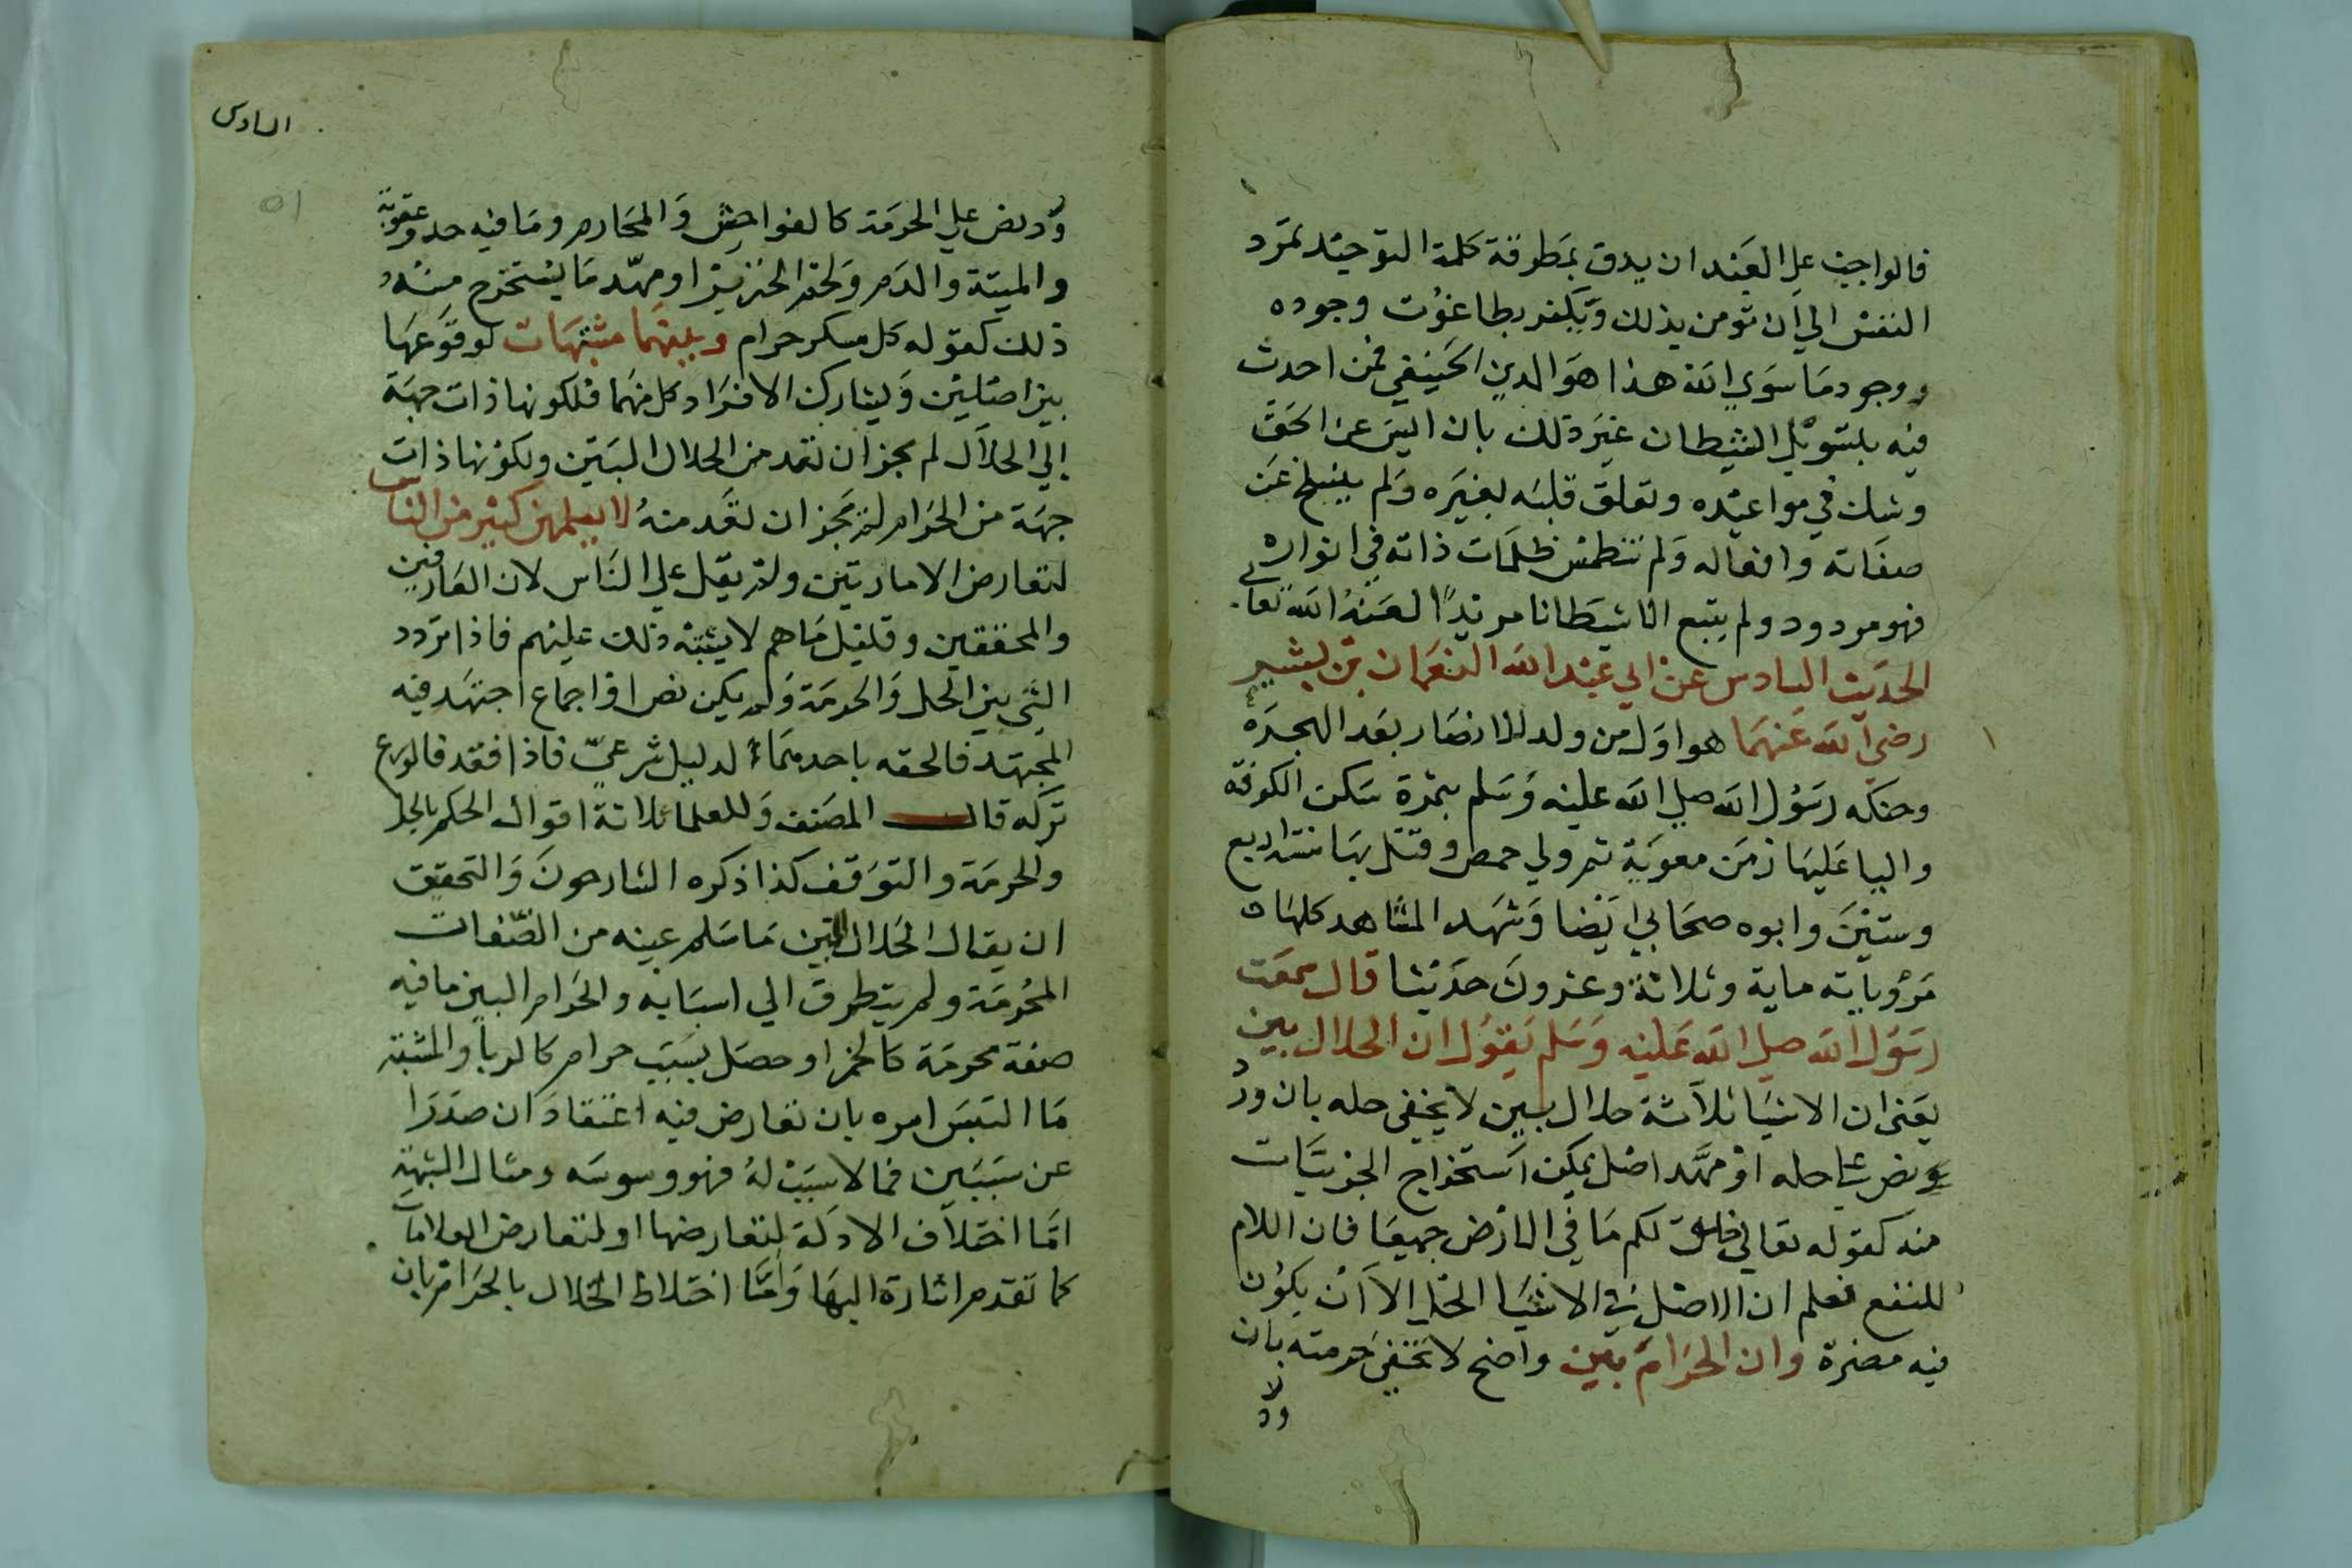 فالواجب على العبد ان يدق بمطرقة كلمة التوحيد تمرد
النفس الي ان تومن بذلك ويكفر بطاغوت وجوده
ووجود ما سوي الله هذا هو الدين الحنيفي فمن احدث
فيه بتسويل الشيطان غير ذلك بان اليس عن الحق
وشك في مواعيده وتعلق قلبه بغيره ولم ينسلخ عن
صفاته وافعاله ولم تنطمس ظلمات ذاته في انواره
فهو مردود ولم يتبع الا شيطانا مريدا لعنه الله تعالي
الحديث السادس عن ابي عبد الله النعمان بن بشير
رضي الله عنهما هو اول من ولد للانصار بعد الهجرة
وحنكه رسول الله صلي الله عليه وسلم بتمرة سكن الكوفة
واليا عليها زمن معوية ثم ولي حمص وقتل بها سنة اربع
وستين وابوه صحابي ايضا وشهد المشاهد كلها
مروياته ماية وثلاثة وعشرون حديثا قال سمعت
رسول الله صلي الله عليه وسلم يقول ان الحلال بين
يعني ان الاشيا ثلاثة حلال بين لا يخفي حله بان ورد
نص علي حله او مهد اصل يمكن استخراج الجزييات
منه كقوله تعالي خلق لكم ما في الارض جميعا فان اللام
للنفع فعلم ان الاصل في الاشيا الحل الا ان يكون
فيه مضرة وان الحرام بين واضح لا تخفي حرمته بان
ورد
السادس
٥١
ورد نص علي الحرمة كالفواحش والمحارم وما فيه حد وعقوبة
والميتة والدم ولحم الخنزير او مهد ما يستخرج منه
ذلك كقوله كل مسكر حرام وبينهما مشتبهات لوقوعها
بين اصلين ويشارك الافراد كل منهما فلكونها ذات جهة
إلي الحلال لم يجز ان تعد من الحلال البين ولكونها ذات
جهة من الحرام لم يجز ان تعد منه لا يعلمهن كثير من الناس
لتعارض الامارتين ولم يقل علي الناس لان العارفين
والمحققين وقليل ما هم لا يشتبه ذلك عليهم فاذا تردد
الشي بين الحل والحرمة ولم يكن نص او اجماع اجتهد فيه
المجتهد فالحقه باحدهما لدليل شرعي فاذا فقد فالورع
تركه قال المصنف وللعلما ثلاثة اقوال الحكم بالحل
والحرمة والتوقف كذا ذكره الشارحون والتحقيق
ان يقال الحلال البين ما سلم عينه من الصفات
المحرمة ولم يتطرق الي اسبابه والحرام البين ما فيه
صفة محرمة كالخمر او حصل بسبب حرام كالربا والمشتبه
ما التبس امره بان تعارض فيه اعتقادان صدرا
عن سببين فما لا سبب له فهو وسوسه ومثال الشبهة
اما اختلاف الادلة لتعارضها او لتعارض العلامات
كما تقدم اشارة اليها واما اختلاط الحلال بالحرام بان